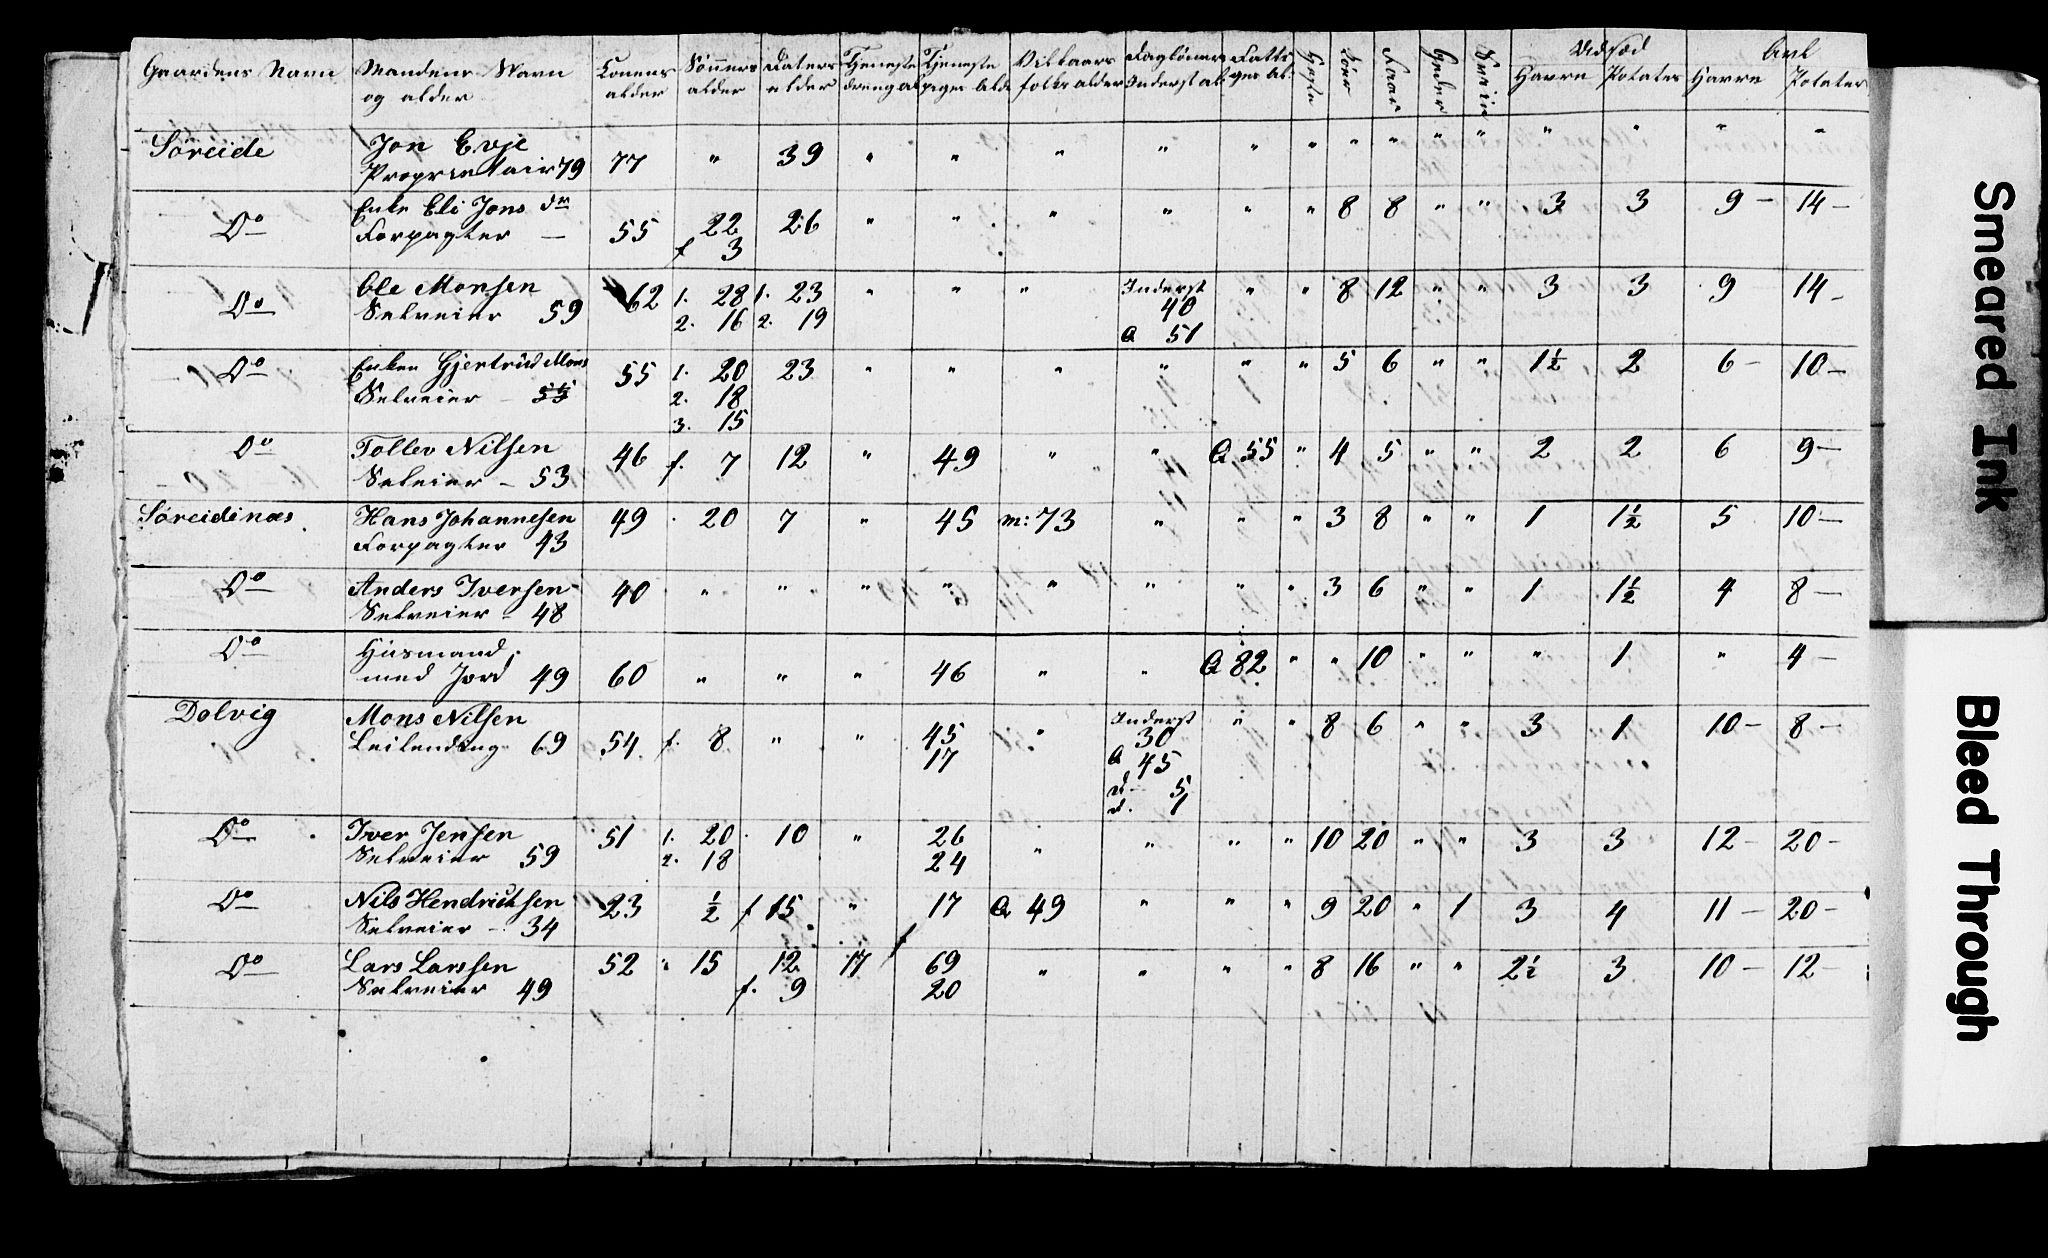 Gaardens Navn Mandens Navn Konens Sönners Døters Tjeneste Tjeneste Vilkaars Daglönere Fatti Heste Kiör Faar Geder Sviin Udsæd Avl
og alder alder alder alder dreng al piges Alde folks alder Inderst al ges al: Havre Potates Havre Potates
Söreide Jon Evje 77 " 39 " " " " " " " " " " " " " "
Proprietair 79
Do Enke Eli Jons dr 55 22 26 " " " " " " 8 8 " " 3 3 9 – 14 –
Forpagter — f 3
Do Ole Monsen 62 1. 28 1. 23 " " " Inderst " " 8 12 " " 3 3 9 14 –
Selveier 59 2. 16 2. 19 40
Q 51
Do Enken Gjertrud Mons 55 1. 20 23 " " " " " " 5 6 " " 1½ 2 6 – 10 –
Selveier – 55 2. 18
3. 15
Do Tollev Nilsen 46 f. 7 12 " 49 " " Q 55 " 4 5 " " 2 2 6 9 –
Selveier – 53
Söreidinæs Hans Johannesen 49 20 7 " 45 m: 73 " " " 3 8 " " 1 1½ 5 10 –
Forpagter 43
Do Anders Iversen 40 " " " " " " " " 3 6 " " 1 1½ 4 8 –
Selveier – 48
Do Husmand 60 " " " 46 " " Q 82 " " 10 " " " 1 " 4 –
med Jord 49
Dolvig Mons Nilsen 54 f. 8 " " 45 " Inderst " " 8 6 " " 3 1 10 – 8 –
Leilending 69 17 30
Q 45
D – 5
d. 1
Do Iver Jensen 51 1. 20 10 " 26 " " " " 10 20 " " 3 3 12 – 20 –
Selveier 59 2. 18 24
Do Nils Hendricksen 23 ½ f 15 " 17 Q 49 " " " 9 20 " 1 3 4 11 – 20 –
Selveier – 34
Do Lars Larssen 52 " 15 12 17 f 69 " " " " 8 16 " " 2½ 3 10 – 12 –
Selveier 49 f. 9 20
Smeared Ink
Bleed Through